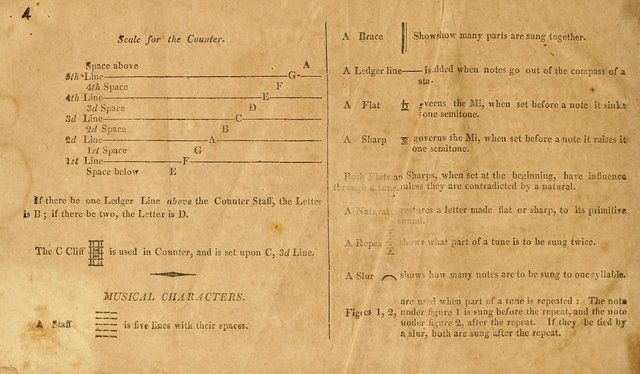 4
Scale for the Counter.
Space above A
5th Line G
4th Space F
4th Line E
3d Space D
3d Line C
2d Space B
2d Line A
1st Space G
1st Line F
Space below E
If there be one Ledger Line above the Counter Staff, the Letter
is B; if there be two, the Letter is D.
The C Cliff is used in Counter, and is set upon C, 3d Line.
MUSICAL CHARACTERS.
A Staff is five lines with their spaces.
A Brace Shows how many parts are sung together.
A Ledger line is added when notes go out of the compass of a
sta
A Flat governs the Mi, when set before a note it sinks
one semitone.
A Sharp governs the Mi, when set before a note it raises it
one semitone.
Both Flats and Sharps, when set at the beginning, have influence
through a tune unless they are contradicted by a natural.
A Natural restores a letter made flat or sharp, to its primitive
sound.
A Repeat shows what part of a tune is to be sung twice.
A Slur shows how many notes are to be sung to one syllable.
are used when part of a tune is repeated: The note
Figures 1, 2, under figure 1 is sung before the repeat, and the note
under figure 2, after the repeat. If they be tied by
a slur, both are sung after the repeat.